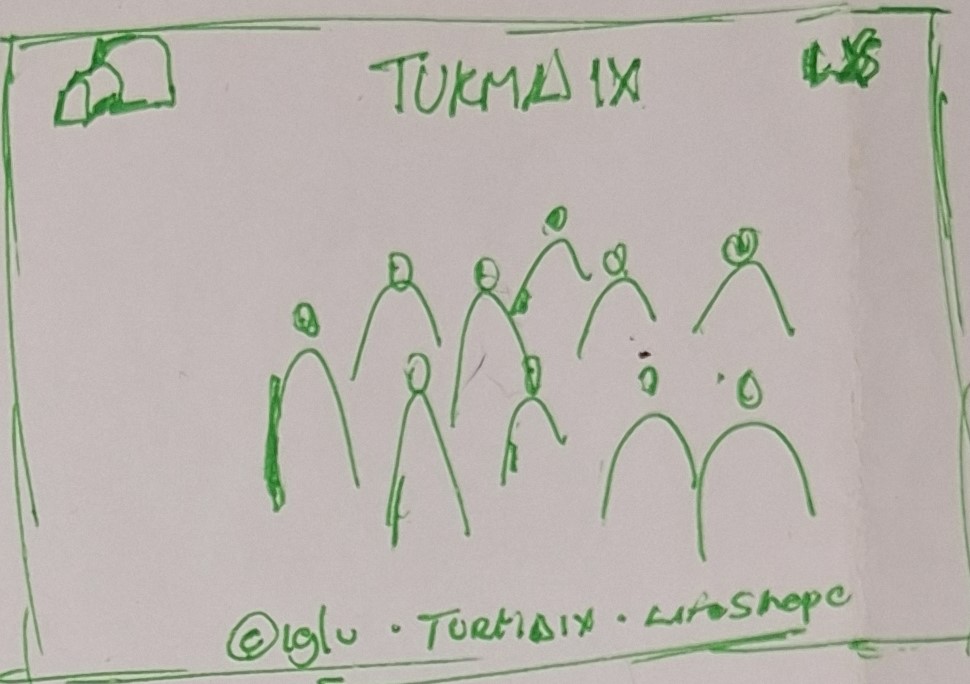 TURMDIX
LXS
©iglu · TURMDIX · LifeShape